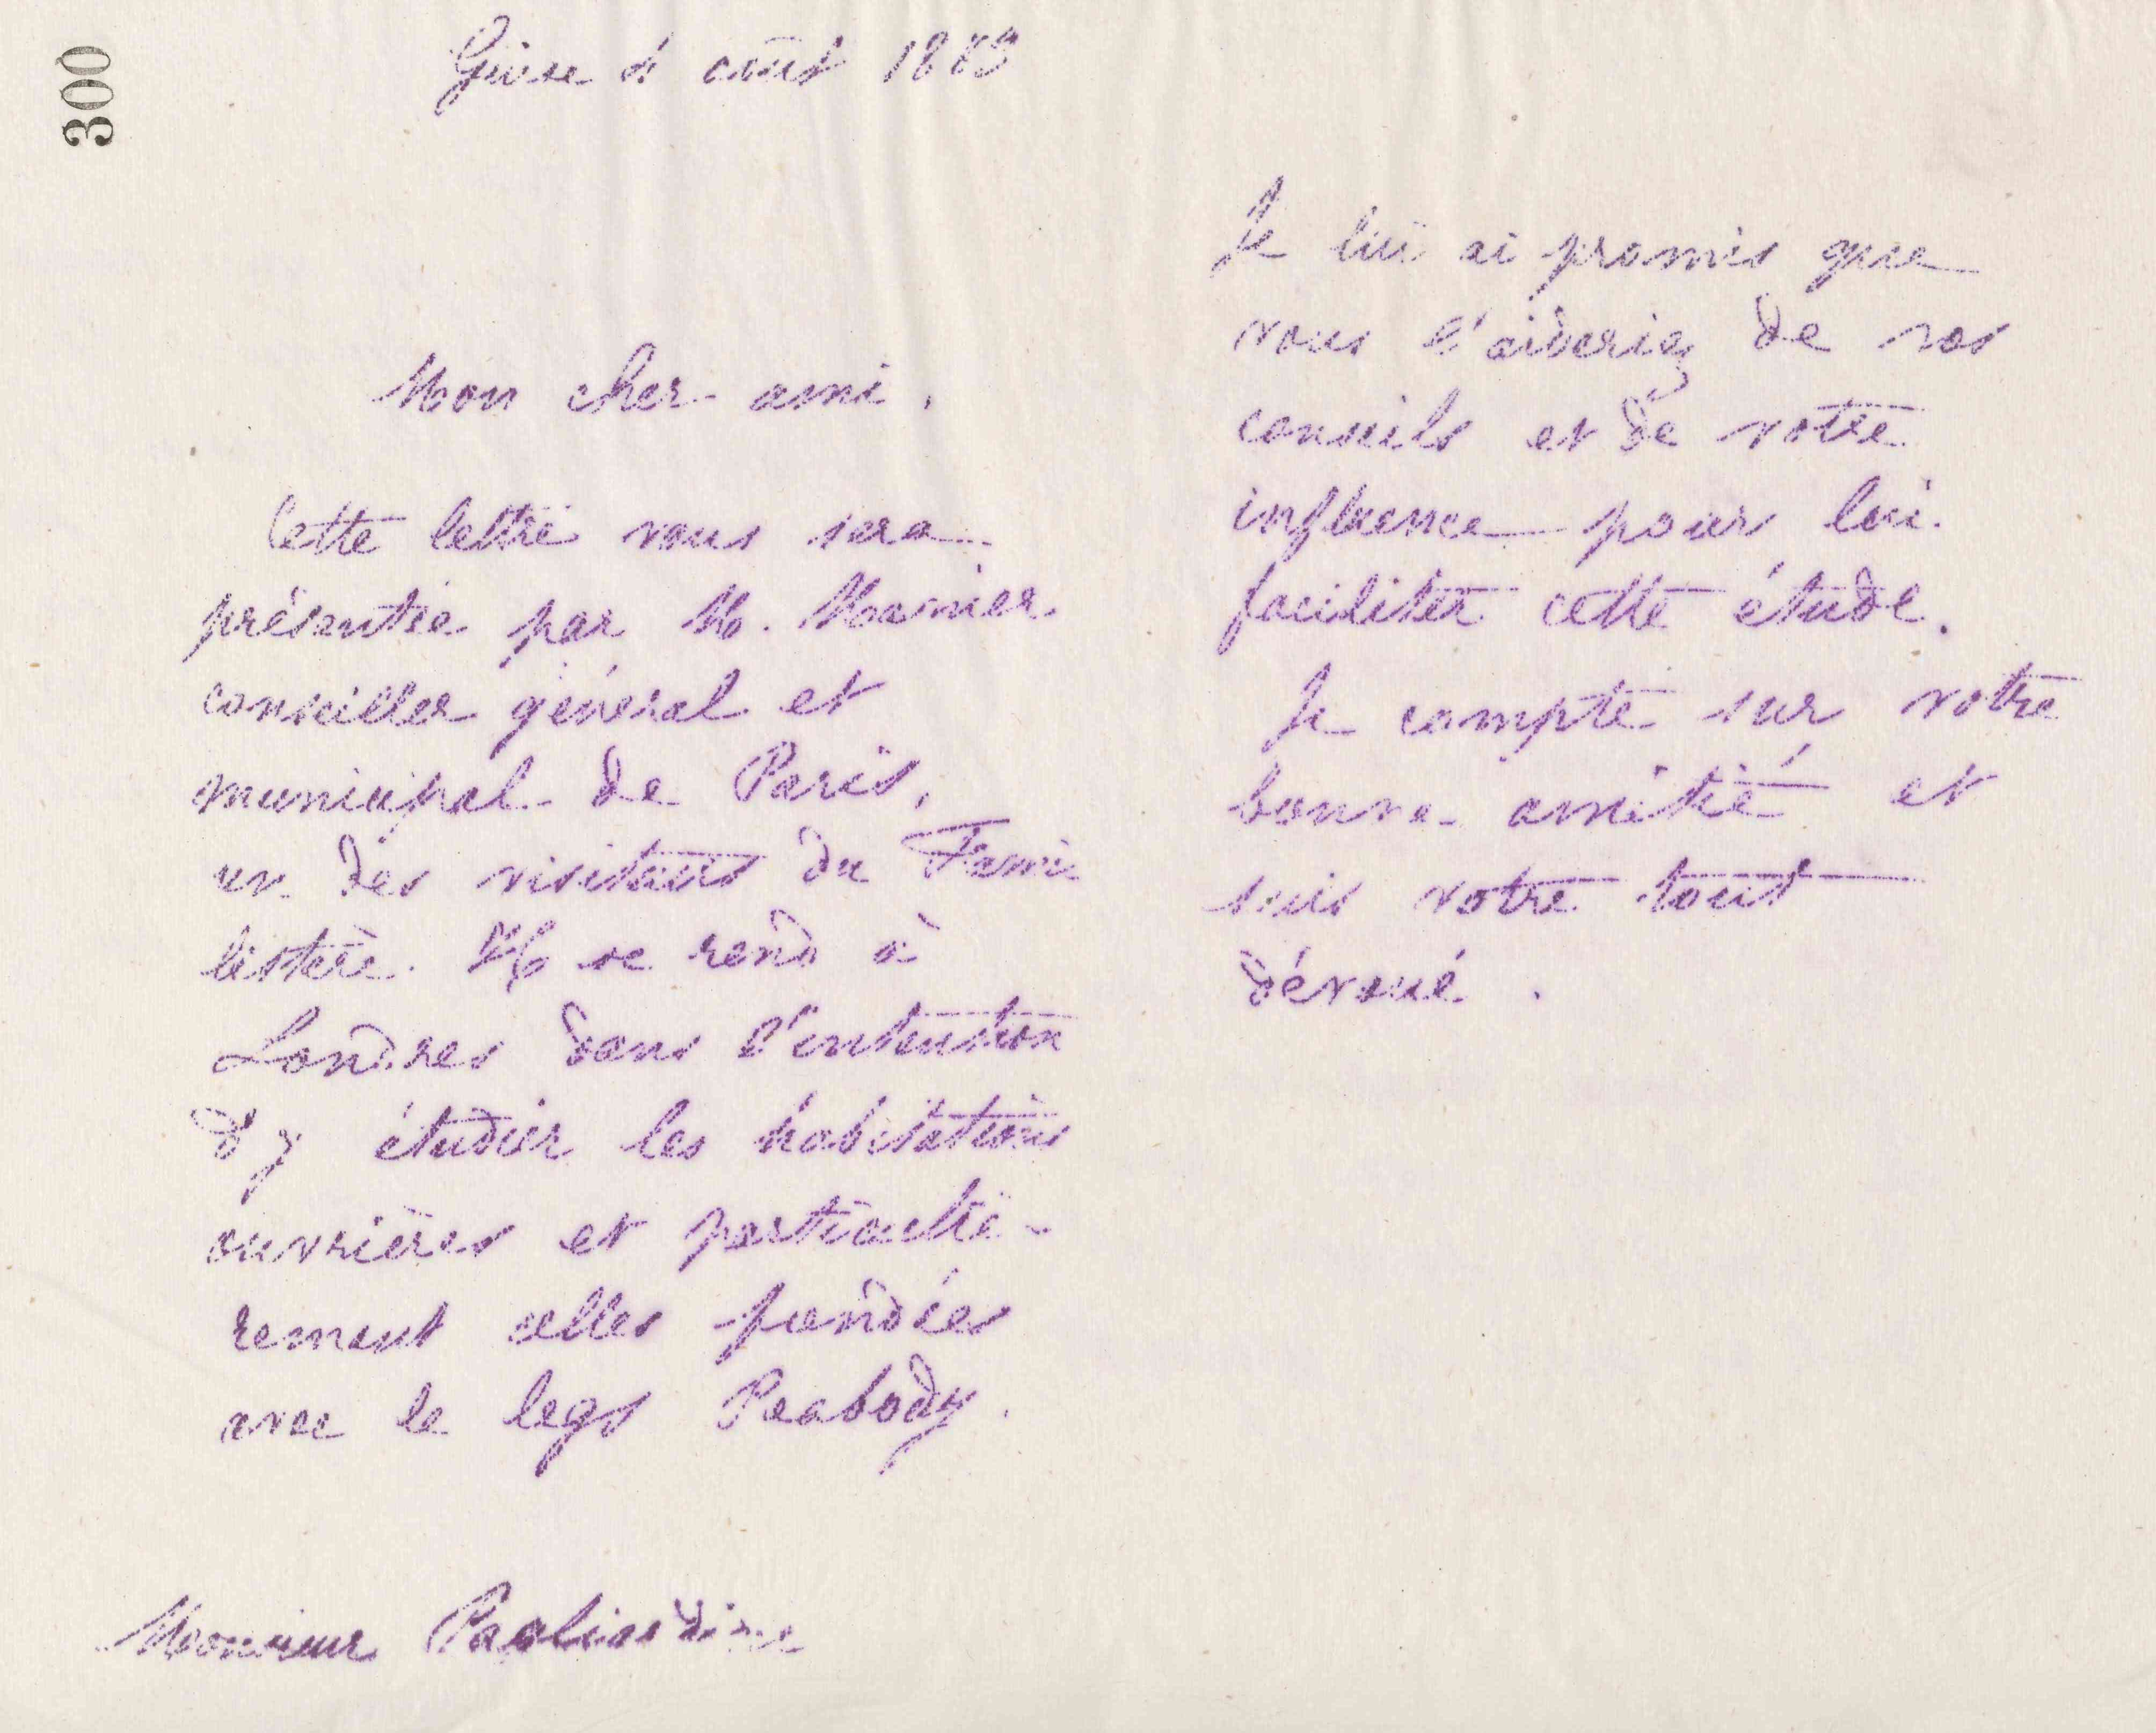 300
Guise 4 août 1883
Mon cher ami,
Cette lettre vous sera
présentée par M. Mamier
conseiller général et
municipal de Paris,
un des visiteurs du Fami
listère. Il se rend à
Londres dans l'intention
d'y étudier les habitations
ouvrières et particuliè-
rement celles fondées
avec le legs Peabody.
Monsieur
Je lui ai promis que
vous l'aideriez de vos
conseils et de votre
influence pour lui
faciliter cette étude.
Je compte sur votre
bonne amitié et
suis votre tout
dévoué.